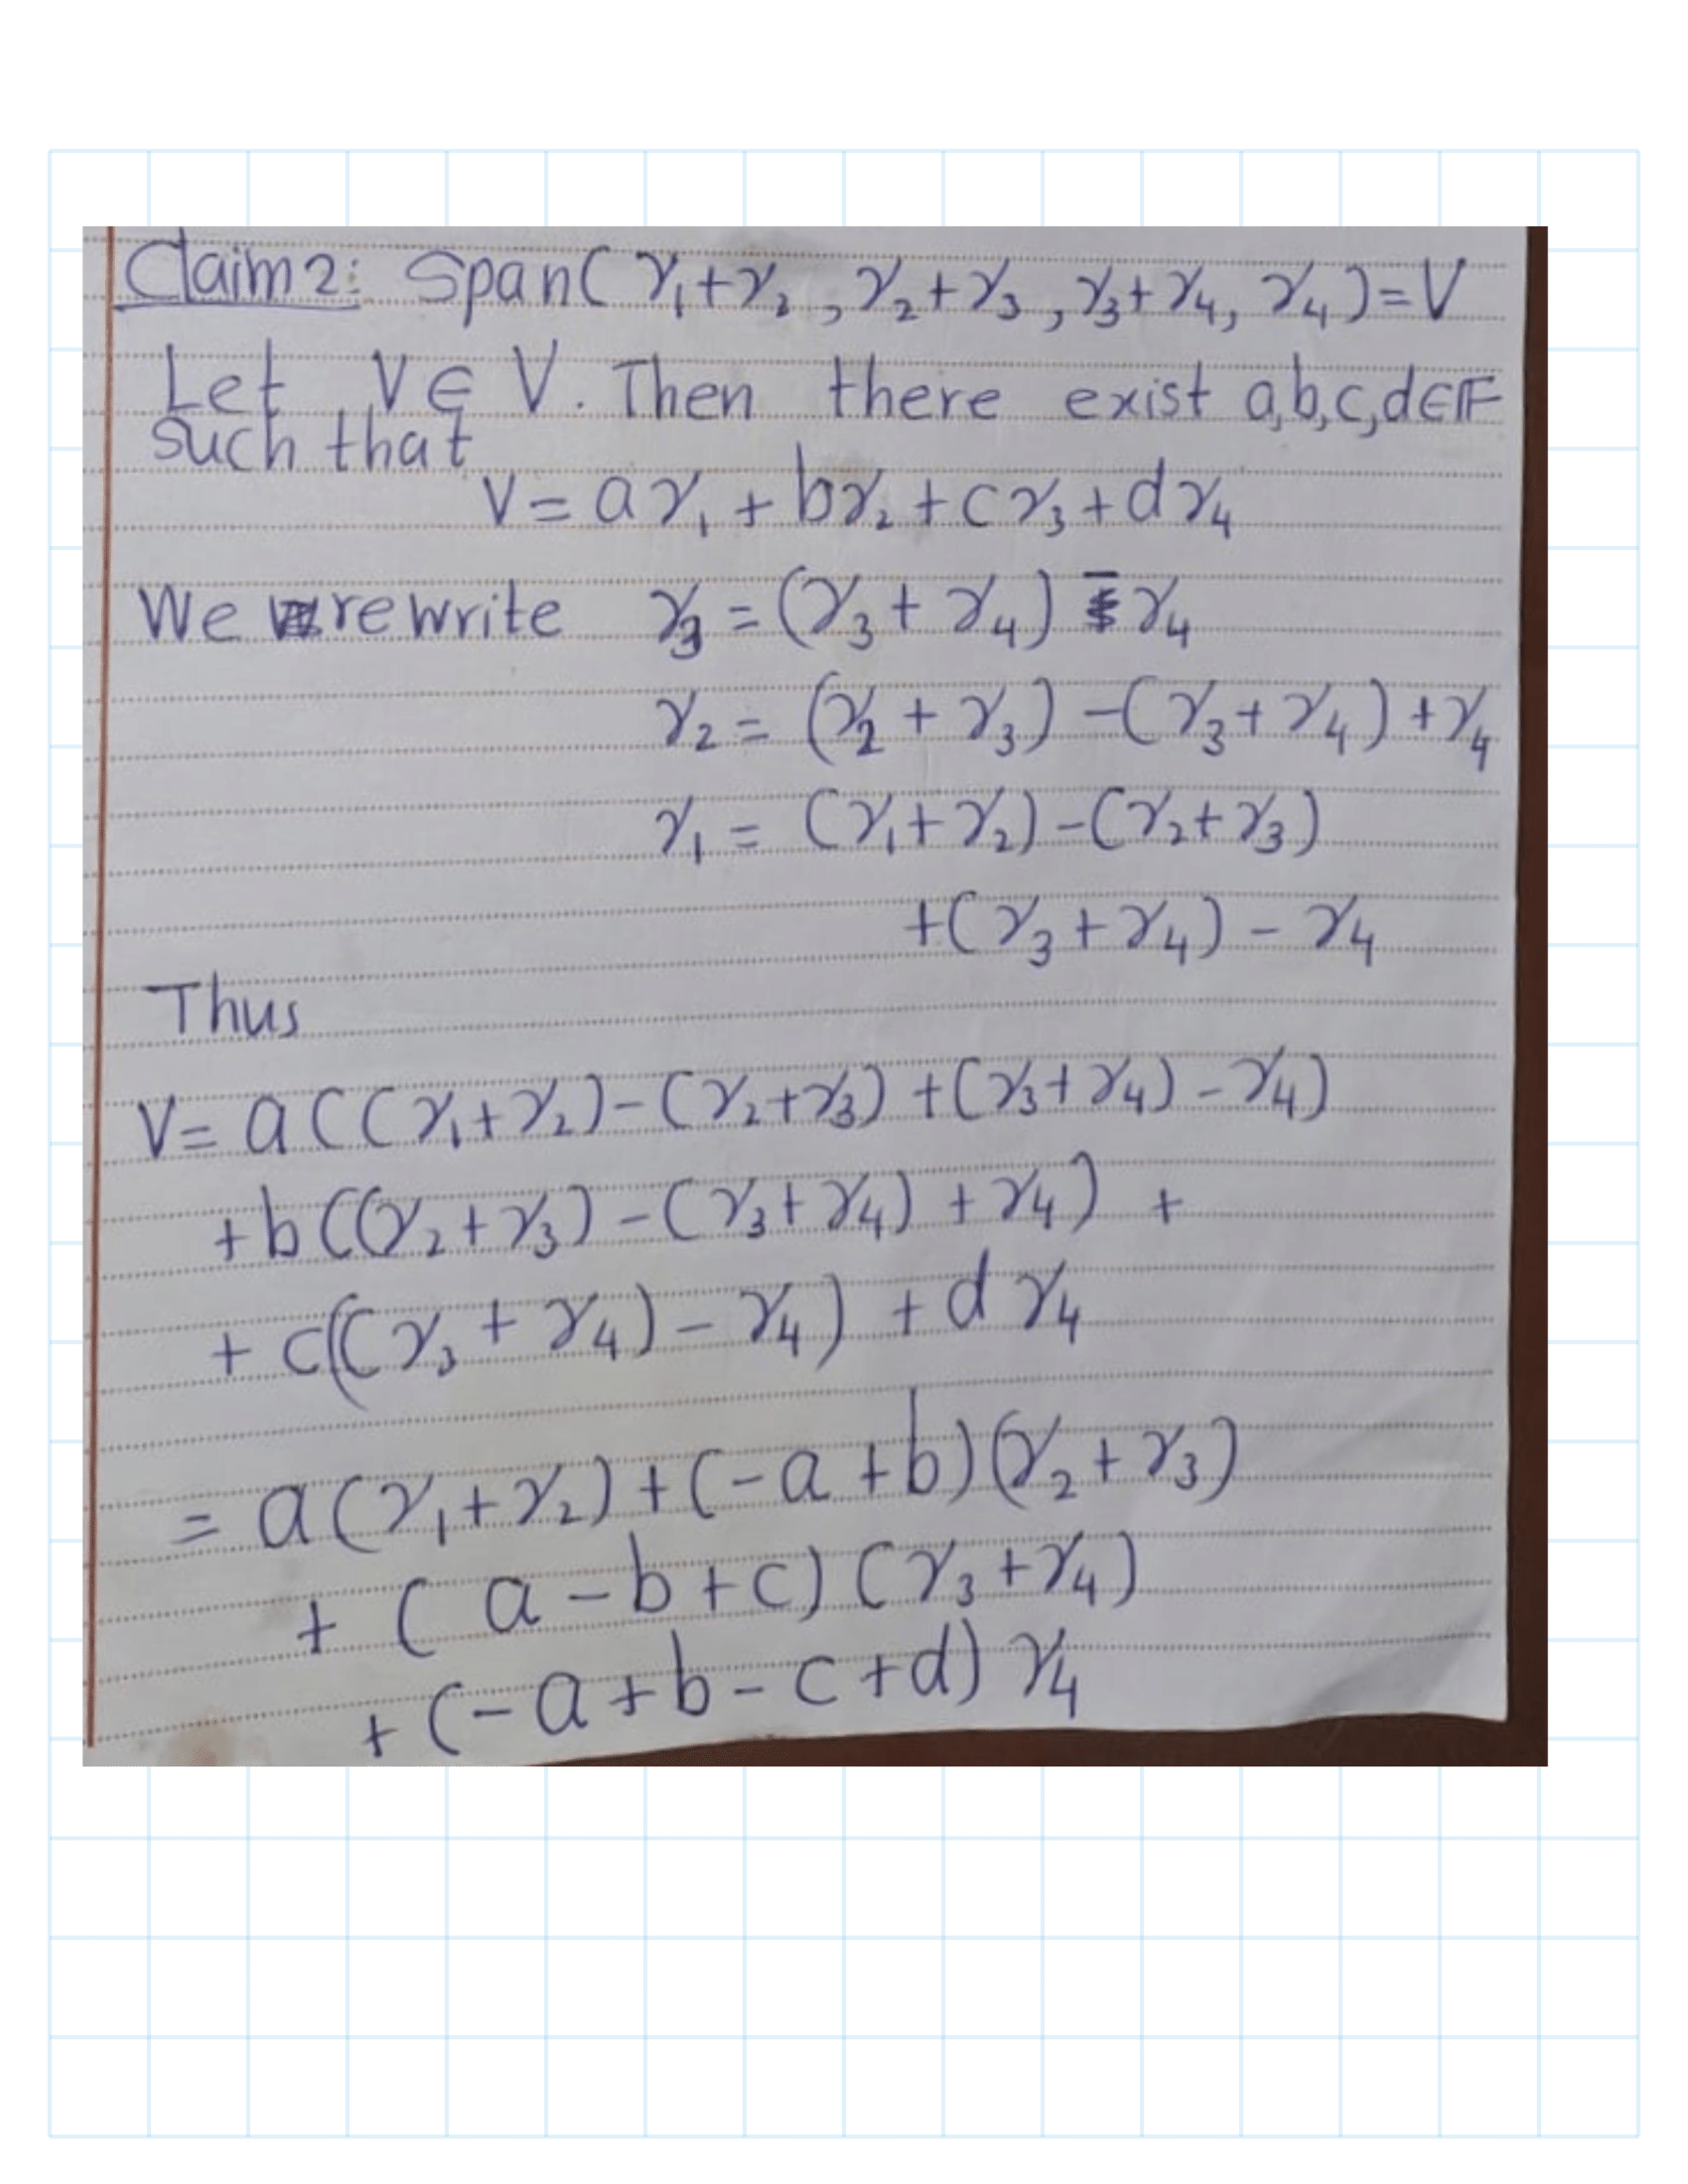 Claim 2: Span(γ₁+γ₂, γ₂+γ₃, γ₃+γ₄, γ₄)=V
Let V∈ V. Then there exist a,b,c,d∈𝔽
such that
V = aγ₁ + bγ₂ + cγ₃ + dγ₄
We rewrite γ₃ = (γ₃ + γ₄) - γ₄
γ₂ = (γ₂ + γ₃) - (γ₃ + γ₄) + γ₄
γ₁ = (γ₁+γ₂) - (γ₂+γ₃)
+(γ₃+γ₄) - γ₄
Thus
V = a((γ₁+γ₂) - (γ₂+γ₃) + (γ₃+γ₄) - γ₄)
+b((γ₂+γ₃) - (γ₃+γ₄) + γ₄) +
+ c((γ₃ + γ₄) - γ₄) + d γ₄
= a(γ₁+γ₂) + (-a+b)(γ₂+γ₃)
+ (a-b+c)(γ₃+γ₄)
+ (-a+b-c+d) γ₄